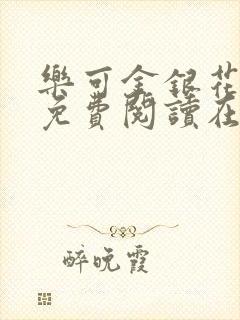 樂可金銀花
免費閱讀在
醉晚霞